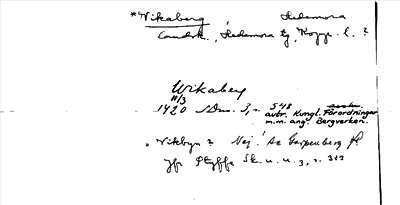 *Vikaberg, Hedemora
Landsk., Hedemora tg, Kopp. l. ?
Wikaberg
11/3
1420 Dn. 3, n. 548
avtr. Kungl. Förordningar
m.m. ang. Bergverken.
Vikbyn? Nej! Se Garpenberg
Jfr Styffe Sk. u. u. 3, s. 312